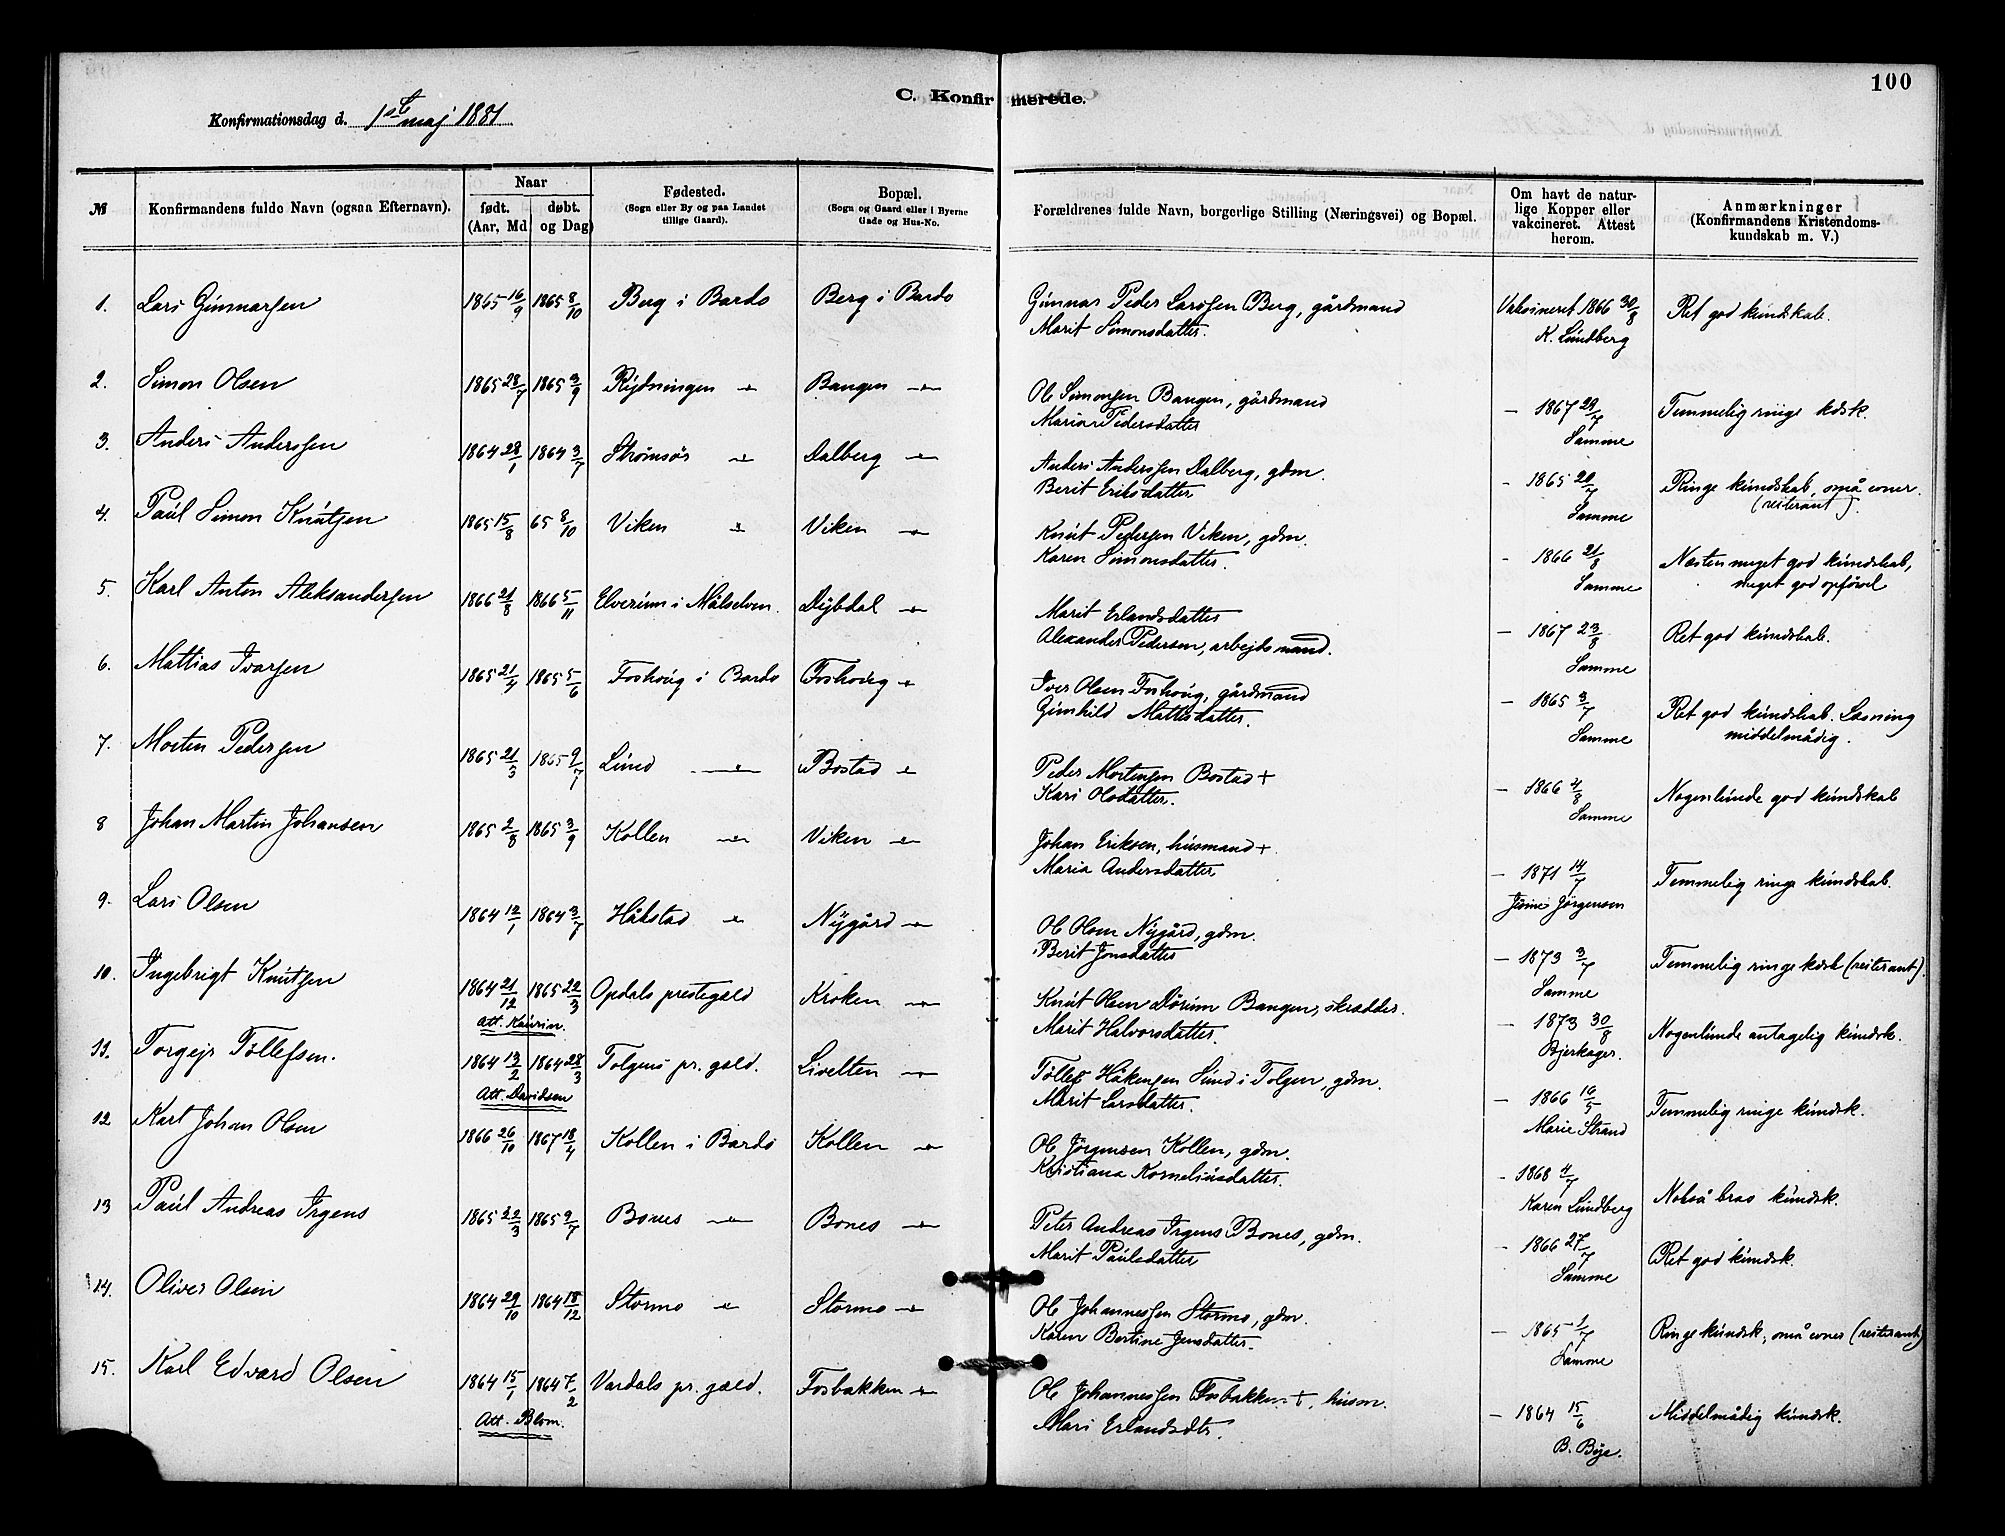 100
C. Konfirmerede.
Konfirmationsdag d. 1ste maj 1881
№
Konfirmandens fulde Navn (ogsaa Efternavn).
Naar
født. døbt.
(Aar, Md. og Dag)
Fødested.
(Sogn eller By og paa Landet tillige Gaard).
Bopæl.
(Sogn og Gaard eller i Byerne Gade og Hus-No.
Forældrenes fulde Navn, borgerlige Stilling (Næringsvei) og Bopæl.
Om havt de naturlige Kopper eller vakcineret. Attest herom.
Anmærkninger
(Konfirmandens Kristendomskundskab m. V.)
1. Lars Gunnarsen 1865 16/9 1865 8/10 Berg i Bardo Berg i Bardo Gunnar Peder Larssen Berg, gårdmand Vaksineret 1866 30/8 Ret god kundskab.
Marit Simonsdatter. K. Lundberg
2. Simon Olsen 1865 28/7 1865 3/9 Rydningen " Bangen " Ole Simonsen Bangen, gårdmand – 1867 29/7 Temmelig ringe kdsk.
Maria Pedersdatter Samme
3. Anders Anderssen 1864 28/1 1864 3/7 Strømsør " Dalberg " Anders Anderssen Dalberg, gdm. – 1865 20/7 Ringe kundskab, små evner.
Berit Eriksdatter Samme (reiterant).
4. Paul Simon Knutsen 1865 15/8 65 8/10 Viken " Viken " Knut Pedersen Viken, gdm. – 1866 21/8 Næsten meget god kundskab,
Karen Simonsdatter. Samme meget god opførsel
5. Karl Anton Aleksandersen 1866 21/8 1866 5/11 Elverum i Målselven. Dybdal " Marit Erlandsdatter – 1867 23/8 Ret god kundskab.
Alexander Pedersen, arbejdsmand. Samme
6. Mattias Ivarsen 1865 21/4 1865 5/6 Foshoug i Bardo Foshoug " Iver Olsen Foshoug, gårdmand – 1865 3/7 Ret god kundskab. Læsning
Gunhild Mattisdatter. Samme middelmådig.
7. Morten Pedersen 1865 21/3 1865 9/7 Lund " Bostad " Peder Mortensen Bostad + – 1866 4/8 Nogenlunde god kundskab
Kari Olsdatter. Samme
8 Johan Martin Johansen 1865 2/8 1865 3/9 Kollen " Viken " Johan Eriksen, husmand + – 1871 14/7 Temmelig ringe kundskab.
Maria Andersdatter Jörgensen
9. Lars Olsen 1864 12/1 1864 3/7 Håkstad " Nygård " Ole Olsen Nygård, gdm. – 1873 3/7 Temmelig ringe kdsk (reiterant).
Berit Jonsdatter Samme
10. Ingebrigt Knutsen 1864 21/12 1865 22/3 Opdals prestegjeld Kroken " Knut Olsen Dørum Bangen, skrædder. – 1873 30/8 Nogenlunde antagelig kundsk.
Att. Kaurin. Marit Halvorsdatter. Bjerkager.
11. Torgejr Tollefsen. 1864 13/2 1864 28/3 Tolgens pr. gæld. Livelten " Tollef Håkensen Lund i Tolgen, gdm. – 1866 16/5 Temmelig ringe kundsk.
Att. Davidsen Marit Larsdatter. Marie Strand
12 Karl Johan Olsen 1866 26/10 1867 18/4 Kollen i Bardo Kollen " Ole Jörgensen Kollen, gdm. – 1868 4/7 Også bra kundsk.
Kristiana Korneliusdatter. Karen Lundberg
13 Paul Andreas Irgens 1865 22/3 1865 9/7 Bones " Bones " Peter Andreas Irgens Bones, gdm. – 1866 27/7 Ret god kundsk.
Marit Paulsdatter Samme
14. Oliver Olsen 1864 29/10 1864 18/12 Stormo " Stormo " Ole Johannessen Stormo, gdm. – 1865 1/7 Ringe kundsk, små evner (reiterant)
Karen Bertine Jensdatter. Samme
15. Karl Edvard Olsen 1864 15/1 1864 7/2 Vardals pr. gæld. Fosbakken " Ole Johannessen Fosbakken +, husm. – 1864 15/6 Middelmådig kundsk.
Att. Blom. Mari Erlandsdtr. B. Bye.